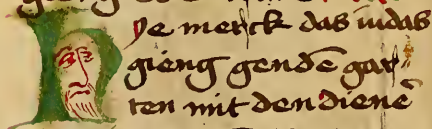 Hye merck das iudas
gieng gen dē gar⸗
ten mit den dienē